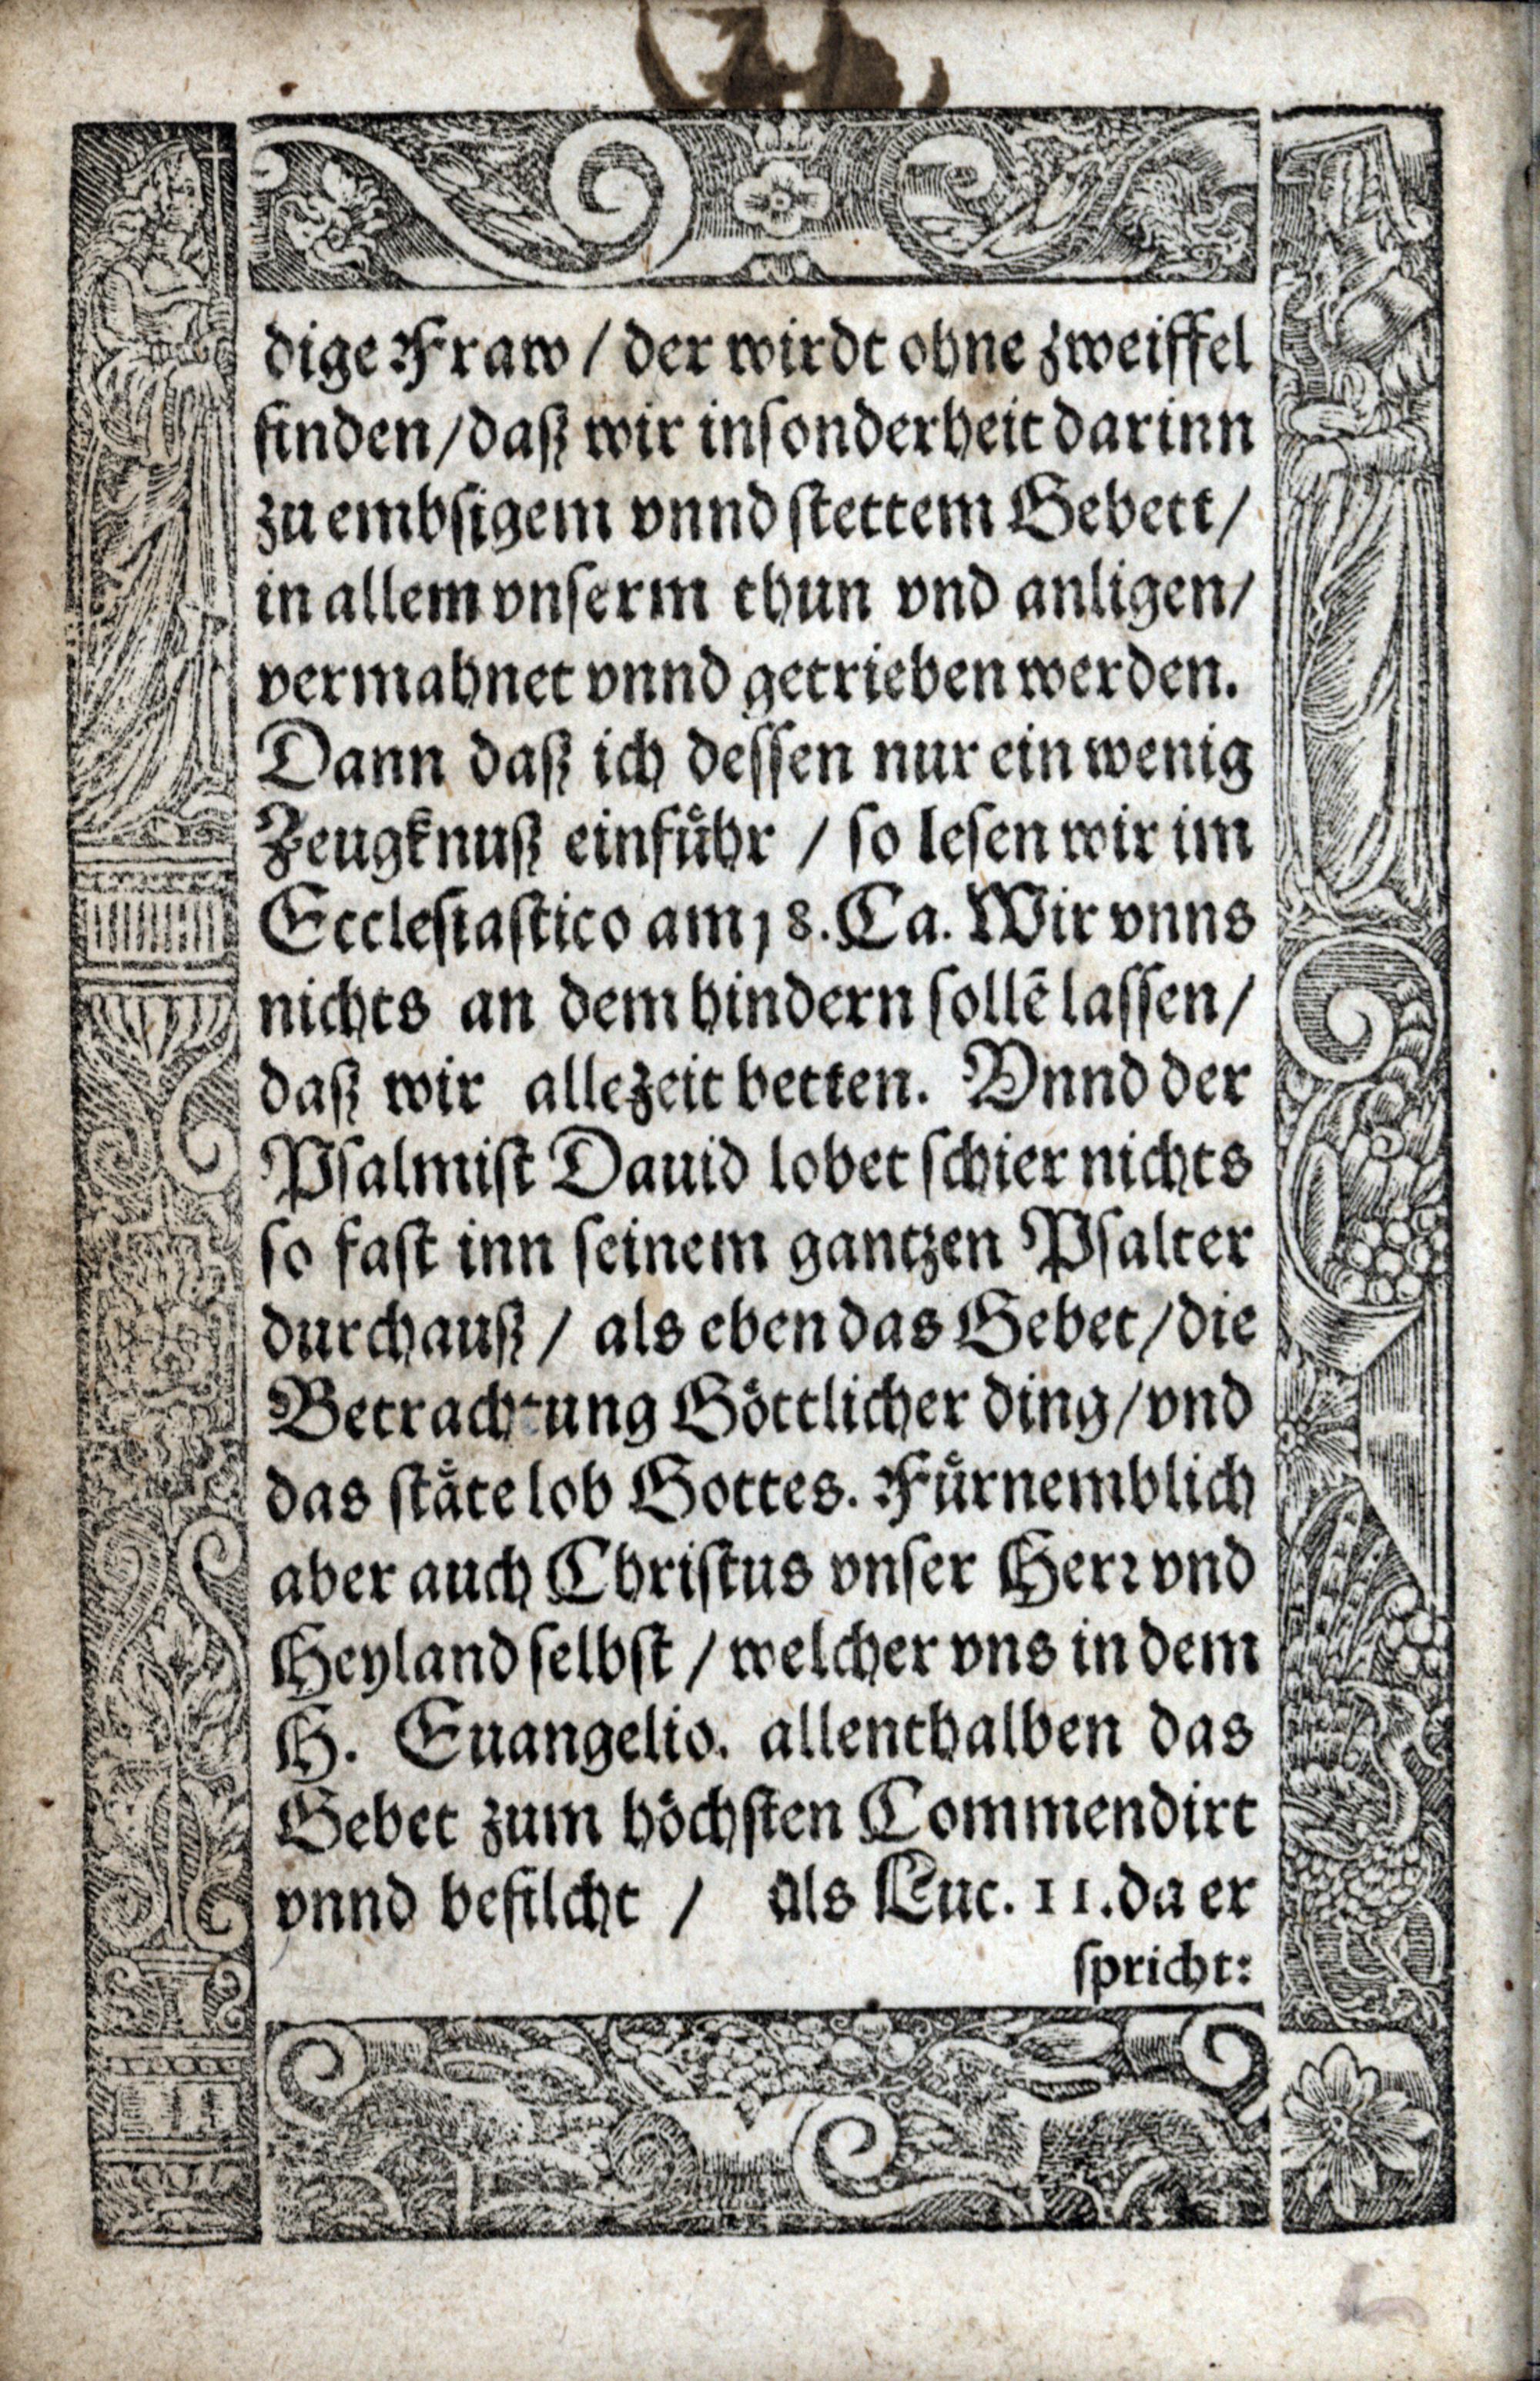 dige Fraw / der wirdt ohne zweiffel
finden / daß wir inſonderheit darinn
zu embſigem vnnd ſtettem Gebett /
in allem vnſerm thun vnd anligen /
vermahnet vnnd getrieben werden.
Dann daß ich deſſen nur ein wenig
Zeugknuß einfuͤhr / ſo leſen wir im
Eccleſiaſtico am 18. Ca. Wir vnns
nichts an dem hindern ſollē laſſen /
daß wir allezeit betten. Vnnd der
Pſalmiſt Dauid lobet ſchier nichts
ſo faſt inn ſeinem gantzen Pſalter
durchauß / als eben das Gebet / die
Betrachtung Goͤttlicher ding / vnd
das ſtaͤte lob Gottes. Fuͤrnemblich
aber auch Chriſtus vnſer Herꝛ vnd
Heyland ſelbſt / welcher vns in dem
H. Euangelio. allenthalben das
Gebet zum hoͤchſten Commendirt
vnnd befilcht / als Luc. 11. da er
ſpricht: